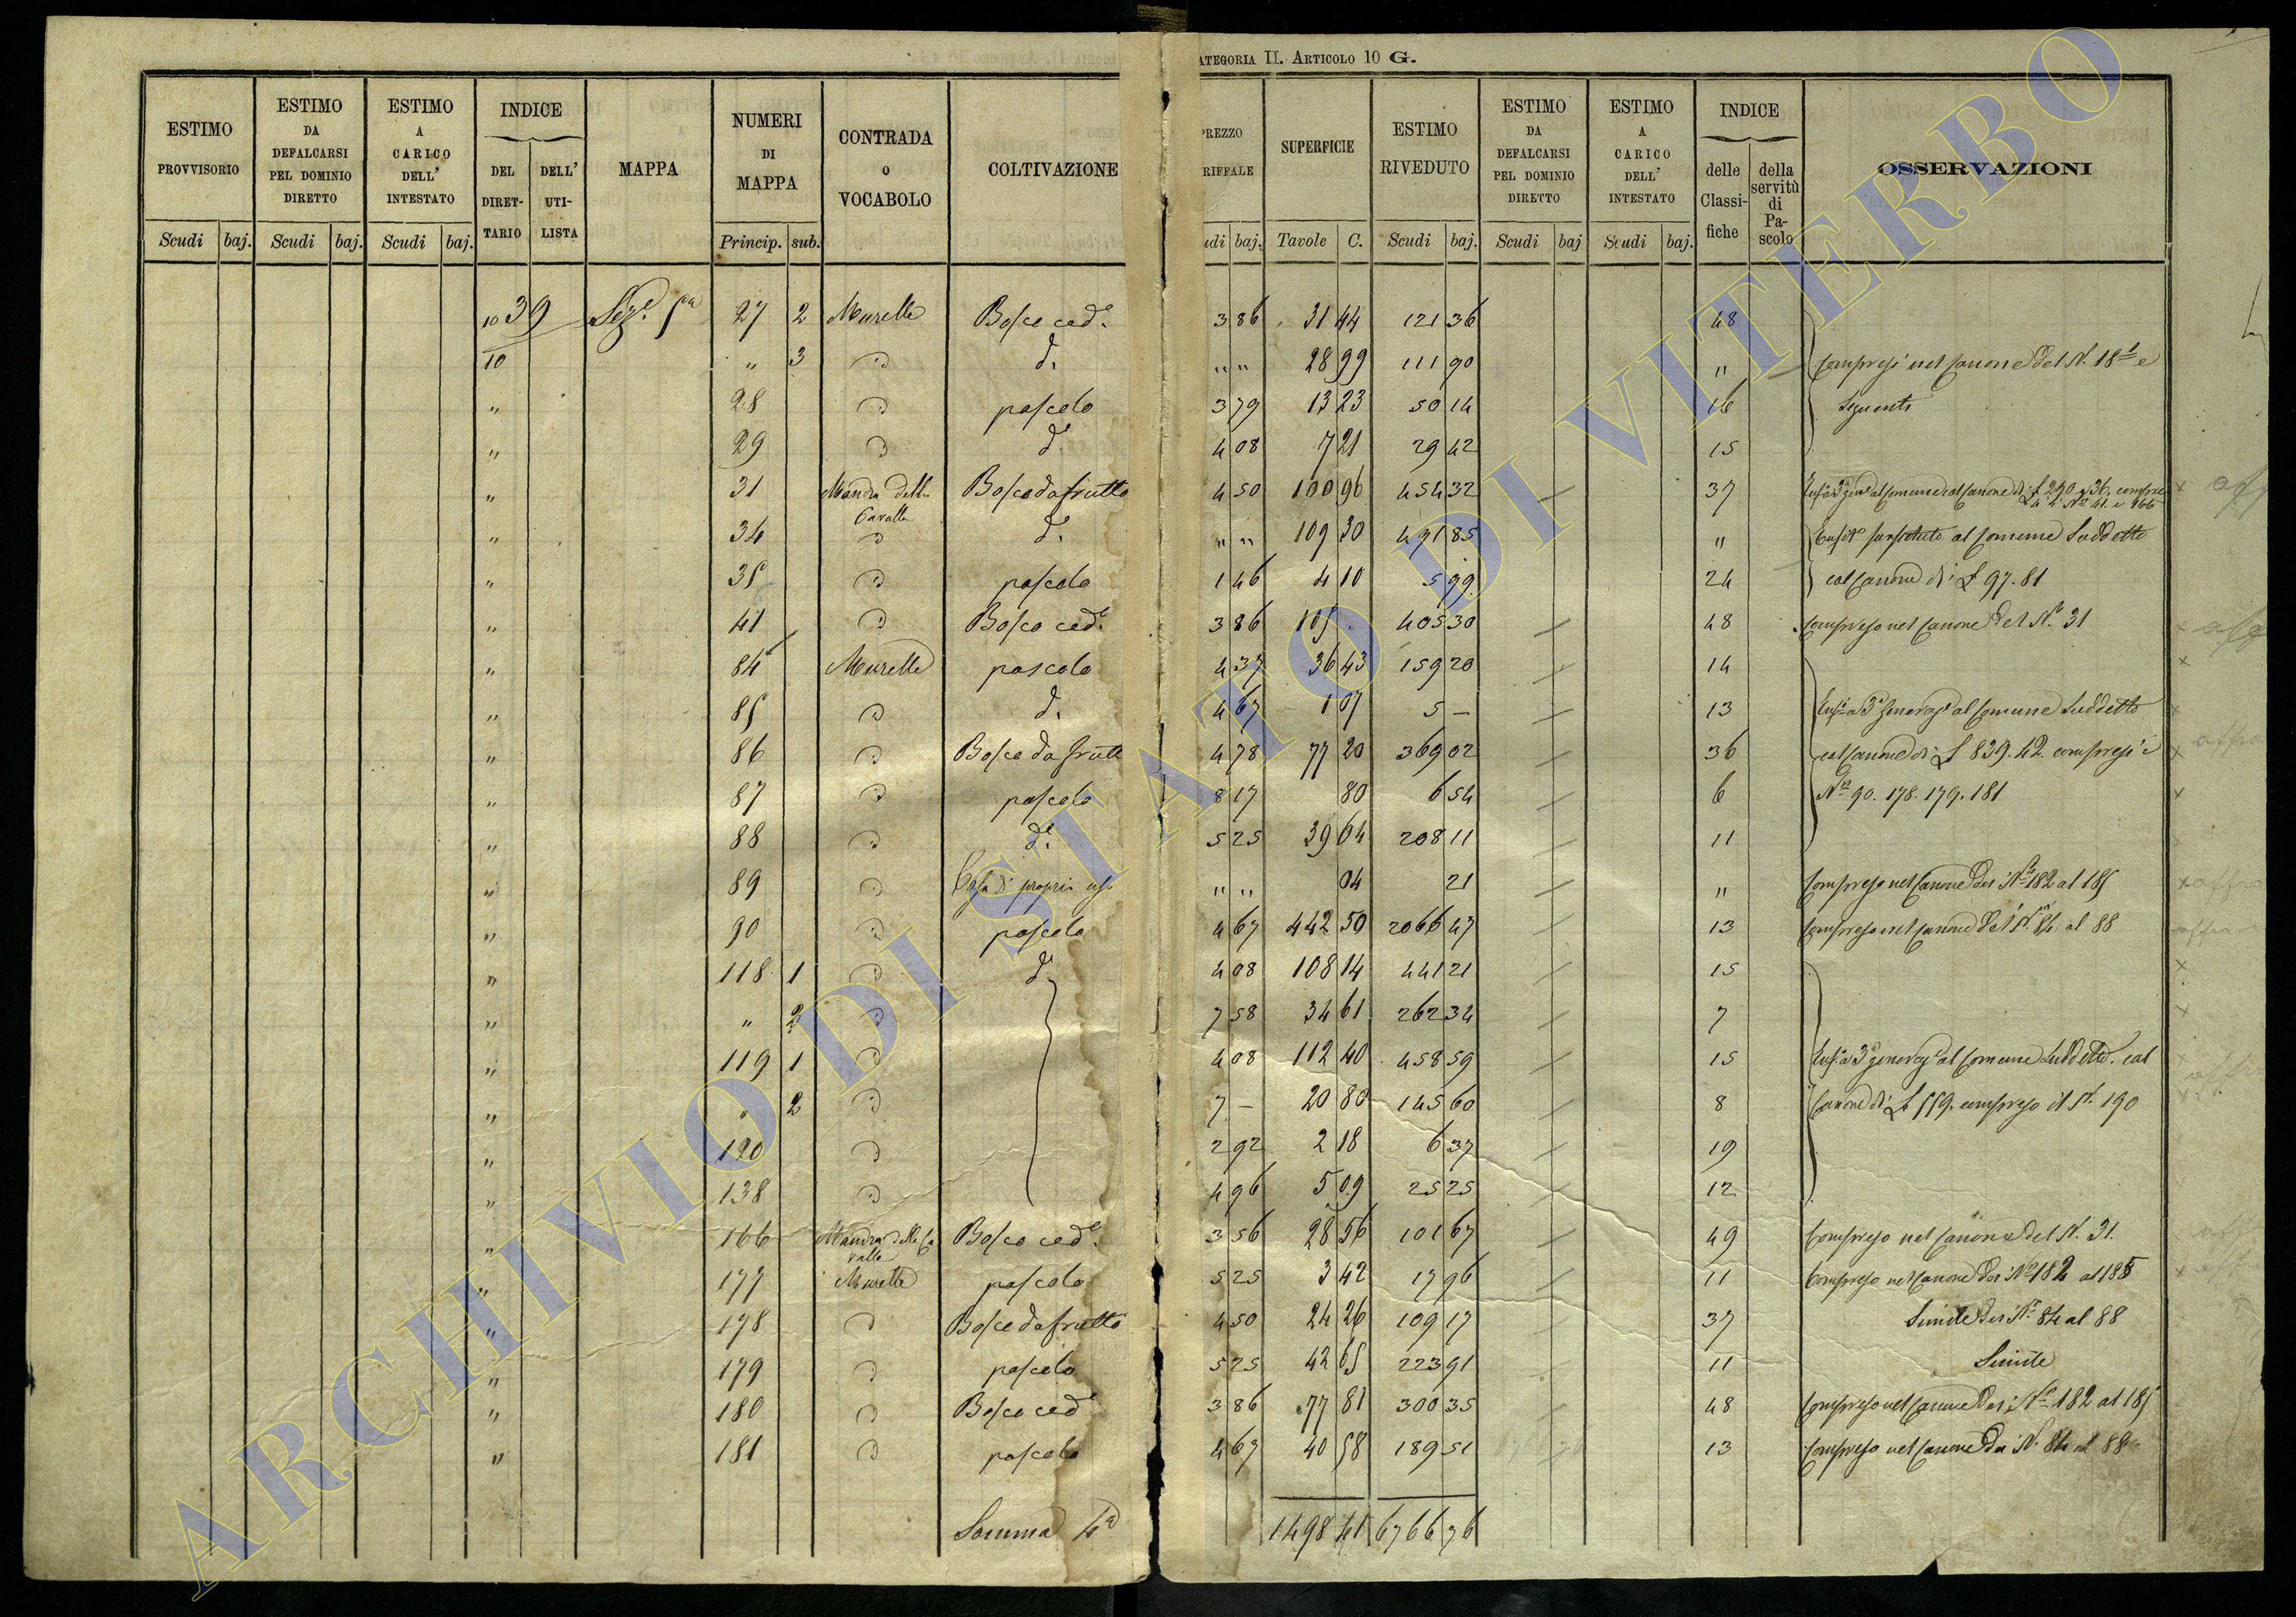 ATEGORIA II. ARTICOLO 10 G.
ESTIMO PROVVISORIO | ESTIMO DA DEFALCARSI PEL DOMINIO DIRETTO | ESTIMO A CARICO DELL' INTESTATO | INDICE DEL DIRETTARIO | DELL' UTILISTA | MAPPA | NUMERI DI MAPPA | CONTRADA O VOCABOLO | COLTIVAZIONE | PREZZO RIFFALE | SUPERFICIE | ESTIMO RIVEDUTO | ESTIMO DA DEFALCARSI PEL DOMINIO DIRETTO | ESTIMO A CARICO DELL' INTESTATO | INDICE delle Classifiche | della servitù di Pascolo | OSSERVAZIONI
Scudi | baj. | Scudi | baj. | Scudi | baj. | Princip. | sub. | udi | baj. | Tavole | C. | Scudi | baj. | Scudi | baj | Scudi | baj.
10 39 | Sez. 5a | 27 | 2 | Murelle | Bosco ced. | 3 86 | 31 44 | 121 36 | 48
10 | " | 3 | d. | " " | 28 99 | 111 90 | " | Compresi nel Canone del N. 18 1 e
" | 28 | pascolo | 3 79 | 13 23 | 50 14 | 16 | Seguenti
" | 29 | d. | 4 08 | 7 21 | 29 42 | 15
" | 31 | Mandra delle Cavalle | Bosco da frutto | 4 50 | 100 96 | 454 32 | 37
" | 34 | d. | " " | 109 30 | 491 85 | " | al Comune Suddetto
" | 35 | pascolo | 1 46 | 4 10 | 5 99 | 24 | col Canone di £ 97.81
" | 41 | Bosco ced. | 3 86 | 105 . | 405 30 | 48 | Compreso nel Canone del N. 31
" | 84 | Murelle | pascolo | 4 37 | 36 43 | 159 20 | 14
" | 85 | d. | 4 67 | 1 07 | 5 — | 13 | Enf. a 3a generaz. al Comune Suddetto
" | 86 | Bosco da frutt | 4 78 | 77 20 | 369 02 | 36 | col Canone di £ 839.42 compresi i
" | 87 | pascolo | 8 17 | 80 | 6 54 | 6 | Ni 90. 178. 179. 181
" | 88 | d. | 5 25 | 39 64 | 208 11 | 11
" | 89 | Casa di proprio uso | " " | 04 | 21 | " | Compreso nel Canone dei Ni 182 al 185
" | 90 | pascolo | 4 67 | 442 50 | 2066 47 | 13 | Compreso nel Canone dei Ni 84 al 88
" | 118 | 1 | d. | 4 08 | 108 14 | 441 21 | 15
" | " | 2 | 7 58 | 34 61 | 262 34 | 7
" | 119 | 1 | 4 08 | 112 40 | 458 59 | 15 | Enf. a 3a generaz. al Comune Suddetto. col
" | " | 2 | 7 — | 20 80 | 145 60 | 8 | Canone di £ 559. compreso il N. 190
" | 120 | 2 92 | 2 18 | 6 37 | 19
" | 138 | 4 96 | 5 09 | 25 25 | 12
" | 166 | Mandra delle Cavalle | Bosco ced. | 3 56 | 28 56 | 101 67 | 49 | Compreso nel Canone del N. 31.
" | 177 | Murelle | pascolo | 5 25 | 3 42 | 17 96 | 11 | Compreso nel Canone dei Ni 182 al 185
" | 178 | Bosco da frutto | 4 50 | 24 26 | 109 17 | 37 | Simile dei Ni 84 al 88
" | 179 | pascolo | 5 25 | 42 65 | 223 91 | 11 | Simile
" | 180 | Bosco ced | 3 86 | 77 81 | 300 35 | 48 | Compreso nel Canone dei Ni 182 al 185
" | 181 | pascolo | 4 67 | 40 58 | 189 51 | 13 | Compreso nel Canone dei N. 84 al 88
Somma 4a | 1498 41 | 6766 76
ARCHIVIO DI STATO DI VITERBO